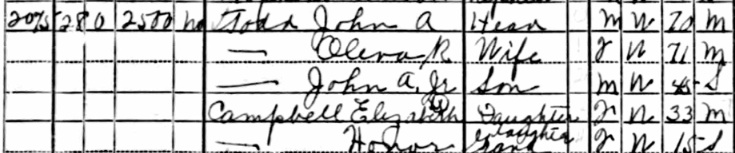 2075 280 2500 no Todd John A Head M W 70 M
— Olena R Wife F W 71 M
— John A, Jr Son M W 45 S
Campbell Elizabeth Daughter F W 33 M
— Honor Grand daughter F W 15 S